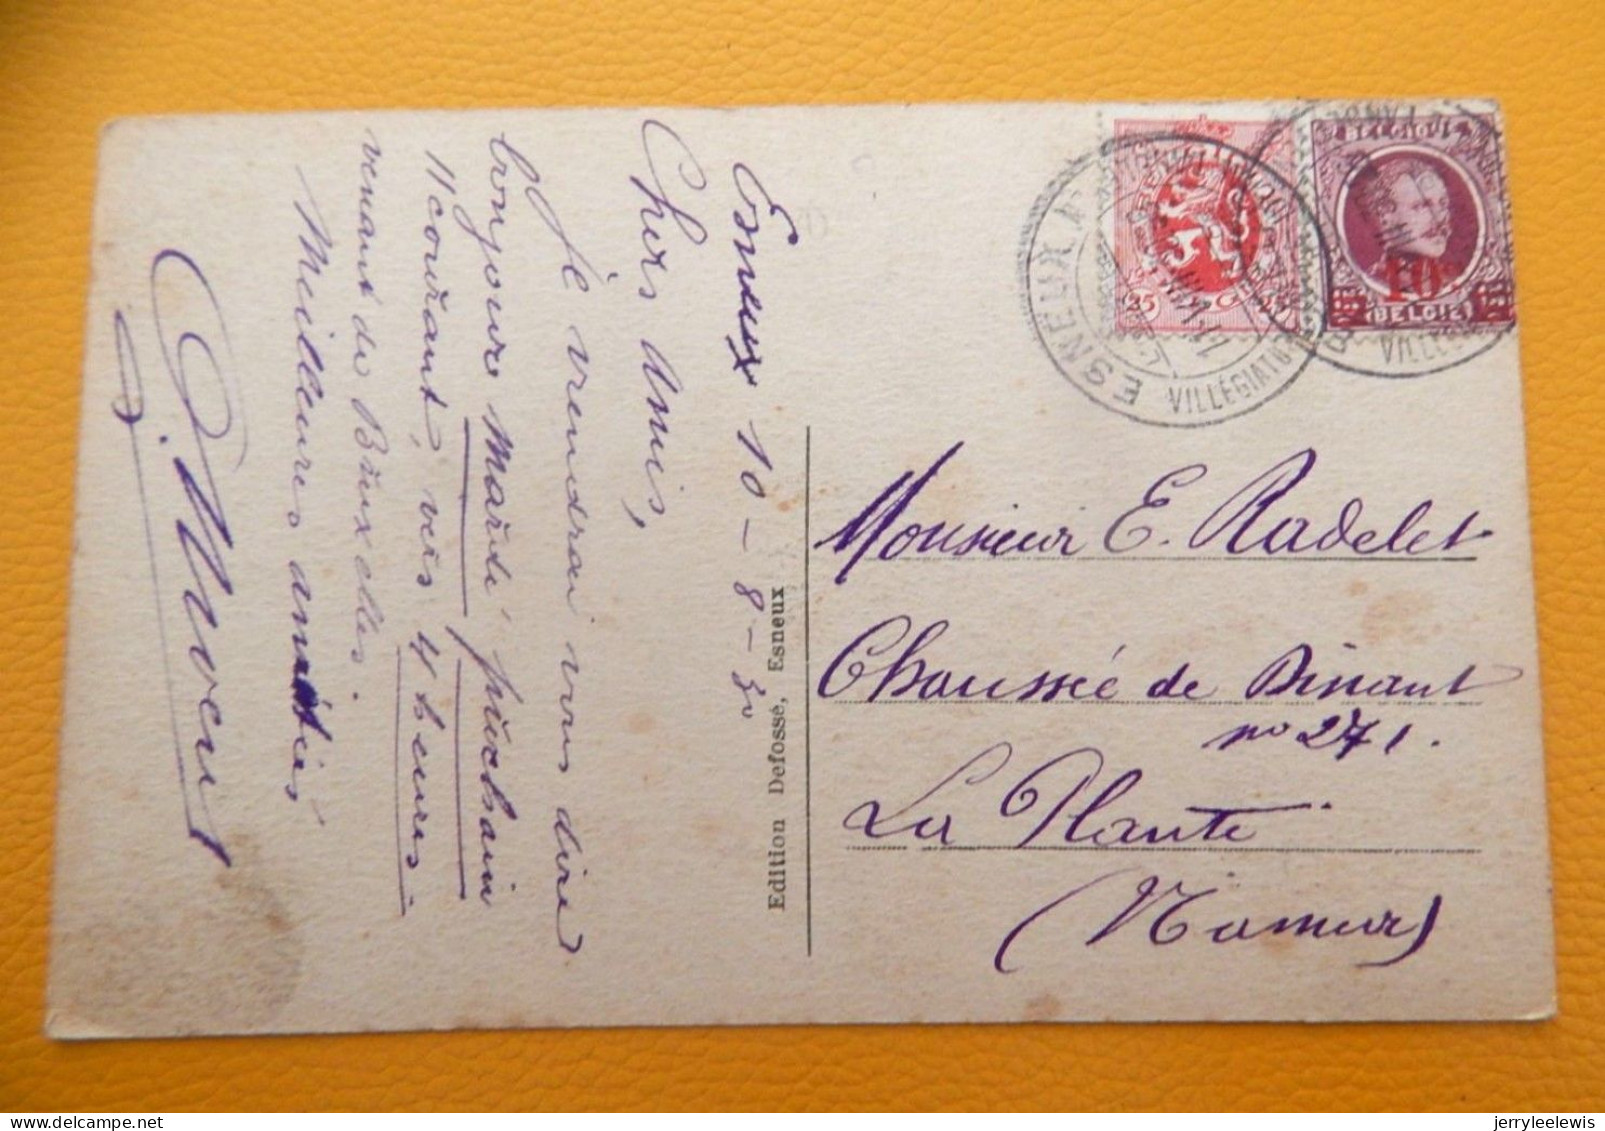 Esneux 10 - 8 - 30
Chers Amis,
Je viendrai vous dire
bonjour Mardi prochain
11 courant, vers 4 heures
venant de Bruxelles.
Meilleures amitiés
Edition Defossé, Esneux
Monsieur E. Radelet
Chaussée de Dinant
no 271.
La Plante
(Namur)
ESNEUX
VILLÉGIATURE
25 25
BELGIQUE
10c
BELGIË
VILLÉ
jerryleelewis